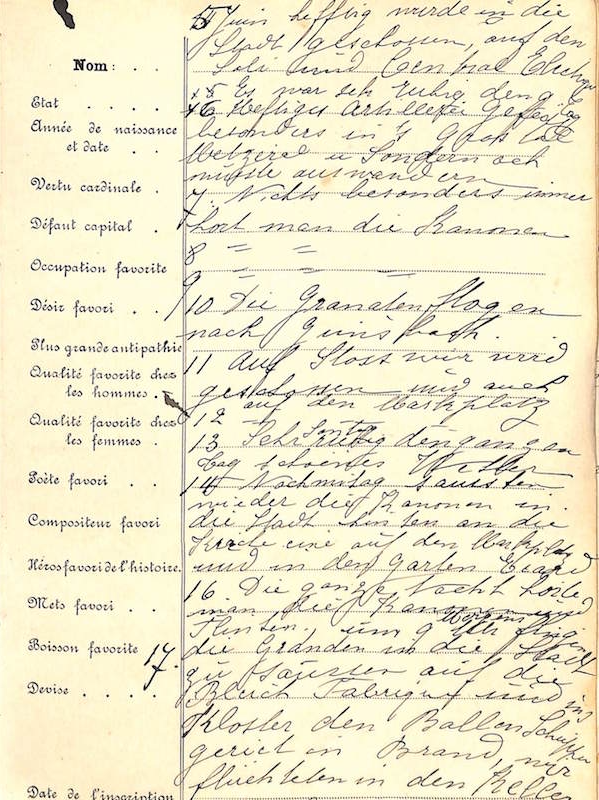 5 Juin heftig wurde in die
Stadt geschossen, auf den
und Central
Nom: . .
x 5 Es war sehr ruhig den g Tag
Etat . . . .
x 6 Heftiges Artillerie
Année de naissance
et date . .
besonders in's
Metzeral u Sondernach
musste auswandern
Vertu cardinale .
7 Nichts besonders immer
Défaut capital .
hört man die Kanonen
8 = =
Occupation favorite
9 = = =
Désir favori . .
10 Die Granaten flogen
nach Günsbach.
Plus grande antipathie
11 Auf Stosswir wird
Qualité favorite chez
les hommes .
geschossen und auch
auf den Markplatz
12 =
Qualité favorite chez
les femmes .
13 Sehr ruhig den gangen
Tag schoenes Wetter
Poète favori . .
14 Nachmitag saussten
wieder die Kanonen in
Compositeur favori
die Stadt hinten an die
eine auf den Markplatz
Héros favori de l'histoire.
und in den Garten
16 Die ganze Nacht hörte
Mets favori . .
man die Kanonen und
Flinten, um 9 Uhr Morgens fingen
Boisson favorite
17.
die Granden in die Stadt
zu saussen auf die
Devise . . . .
Bleich Fabrique und ins
Kloster den Ballen Schuppen
geriet in Brand, wir
flüchteten in den Keller
Date de l'inscription